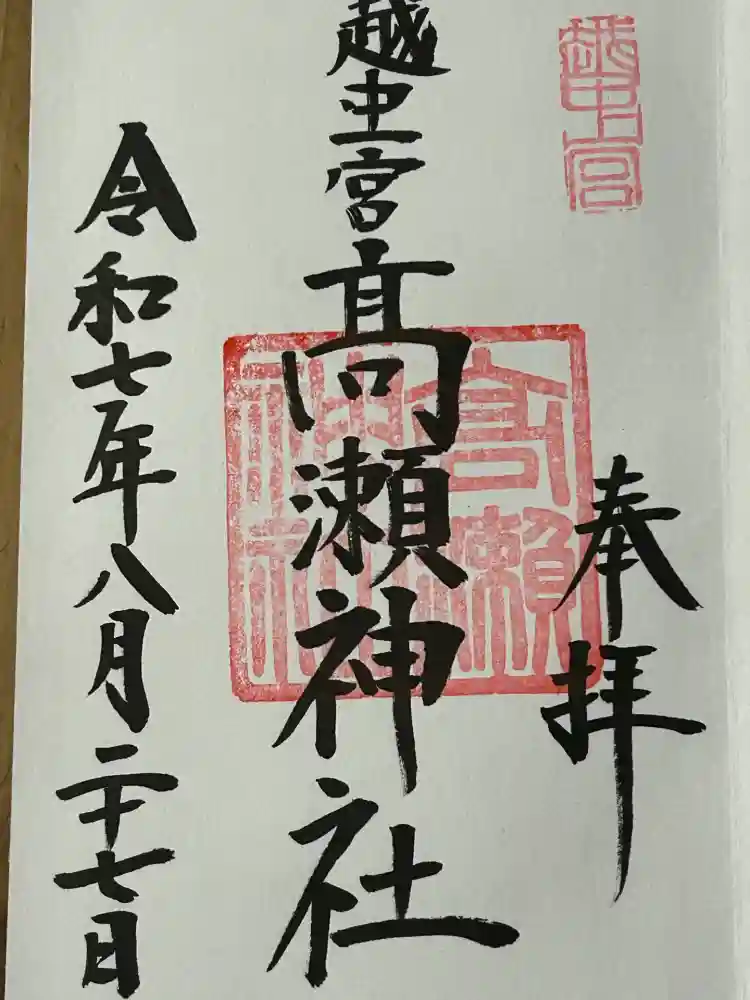 越中一宮
奉拝
越中一宮髙瀬神社
高瀬神社
令和七年八月二十七日